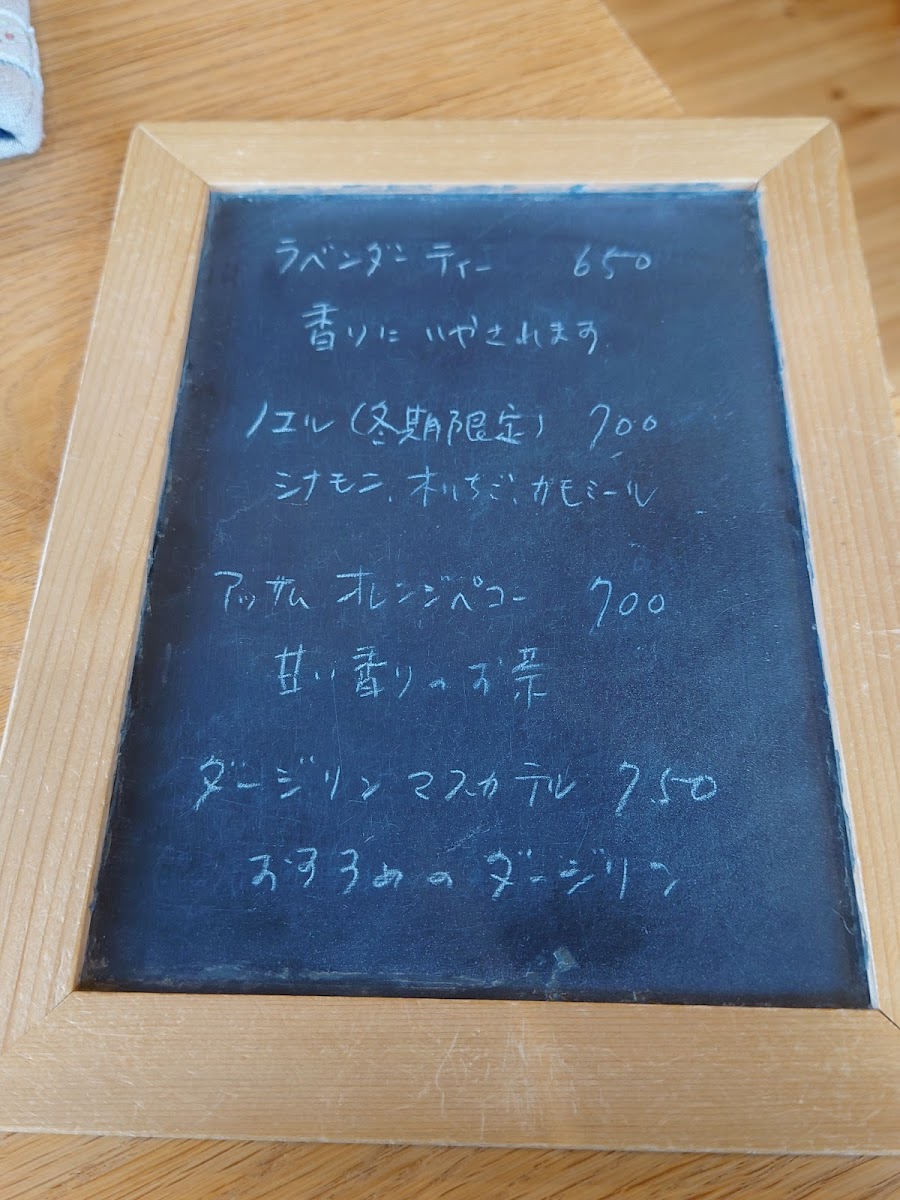 ラベンダーティー 650
香りにいやされます
ノエル(冬期限定) 700
シナモン、木いちご、カモミール
アッサム オレンジペコー 700
甘い香りのお茶
ダージリン マスカテル 750
おすすめのダージリン